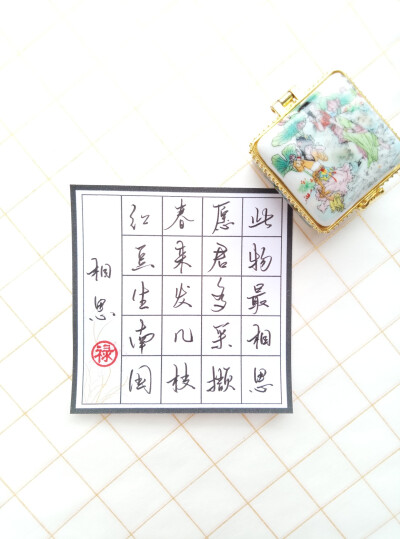 相思
禄
红豆生南国
春来发几枝
愿君多采撷
此物最相思